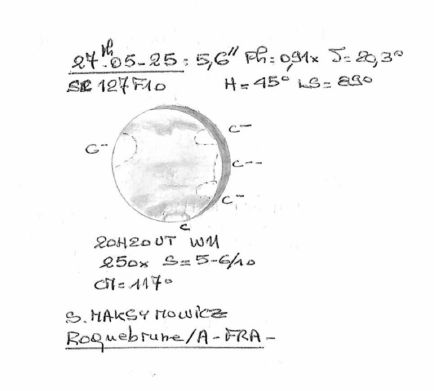 27th.05-25: 5,6" Ph: 0,91x T= 20,3°
127F10 H=45° LS= 89°
C-
C-
C--
C-
C
20H20UT WN
250x S=5-6/10
CM=117°
S. MAKSYMOWICZ
Roquebrune/A-FRA-